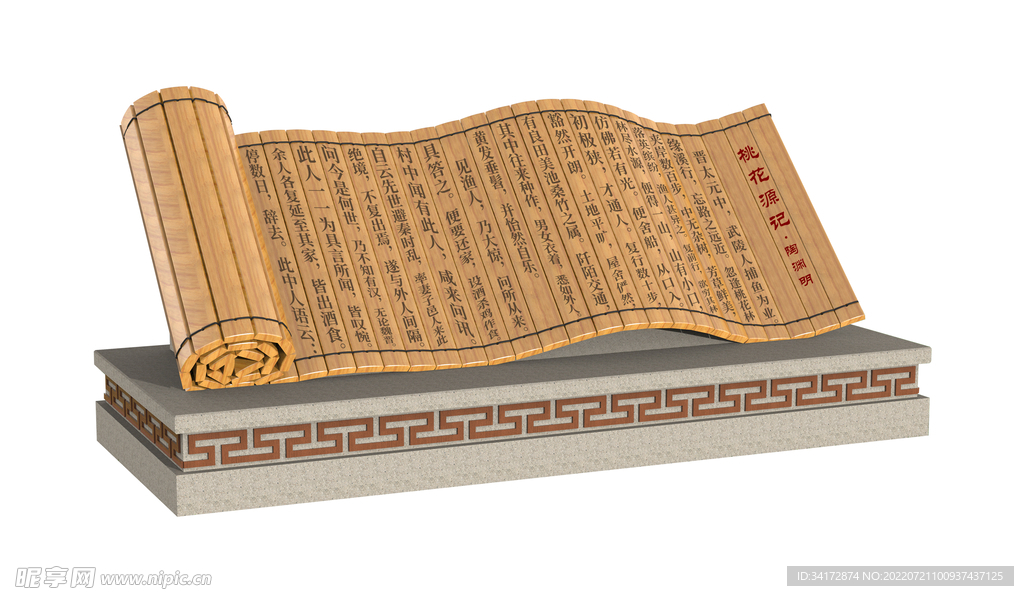 桃花源记·陶渊明
晋太元中，武陵人捕鱼为业。
缘溪行，忘路之远近。忽逢桃花林
夹岸数百步，中无杂树，芳草鲜美，
落英缤纷，渔人甚异之。复前行，欲穷其林
林尽水源，便得一山，山有小口，
仿佛若有光。便舍船，从口入。
初极狭，才通人。复行数十步，
豁然开朗。土地平旷，屋舍俨然，
有良田美池桑竹之属。阡陌交通，
其中往来种作，男女衣着，悉如外人。
黄发垂髫，并怡然自乐。
见渔人，乃大惊，问所从来。
具答之。便要还家，设酒杀鸡作食
村中闻有此人，咸来问讯。
自云先世避秦时乱，率妻子邑人来此
绝境，不复出焉，遂与外人间隔。
问今是何世，乃不知有汉，无论魏晋
此人一一为具言所闻，皆叹惋。
余人各复延至其家，皆出酒食。
停数日，辞去。此中人语云：
昵享网 www.nipic.cn
ID:34172874 NO:20220721100937437125